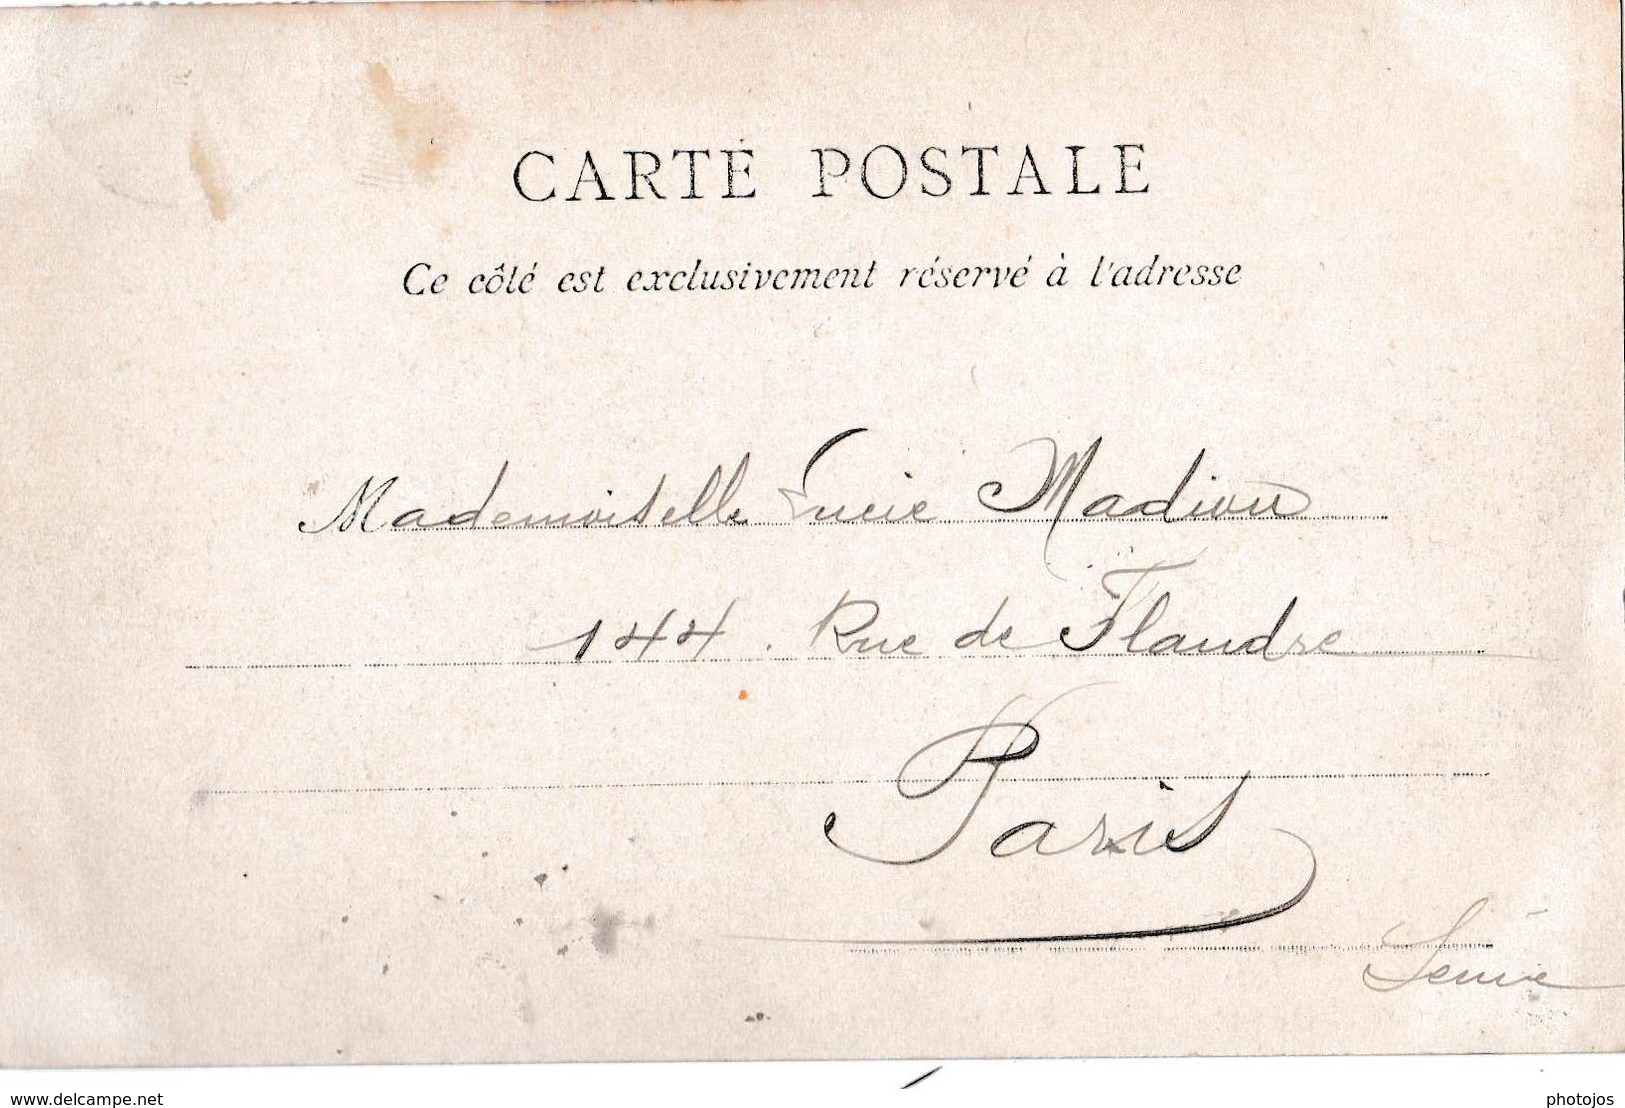 CARTE POSTALE
Ce côté est exclusivement réservé à l'adresse
Mademoiselle Lucie Madiou
144. Rue de Flandre
Paris
Seine
www.delcampe.net
photojos